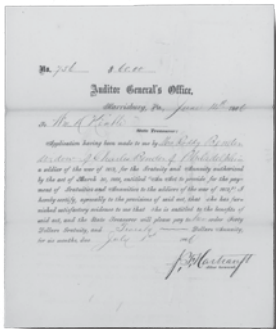 No. 756 $ 60.00
Auditor General's Office,
Harrisburg, Pa,
To Wm H
State Treasurer:
Application having been made to me by Mrs
Widow of Charles of Philadelphia
a soldier of the war of 1812, for the Gratuity and Annuity authorized
by the act of March 30, 1866, entitled "An act to provide for the pay-
ment of Gratuities and Annuities to the soldiers of the war of 1812," I
hereby certify, agreeably to the provisions of said act, that she has fur-
nished satisfactory evidence to me that she is entitled to the benefits of
said act, and the State Treasurer will please pay to her order Forty
Dollars Gratuity, and Twenty Dollars Annuity,
for six months, due July 1st
J F Hartranft
Auditor General.